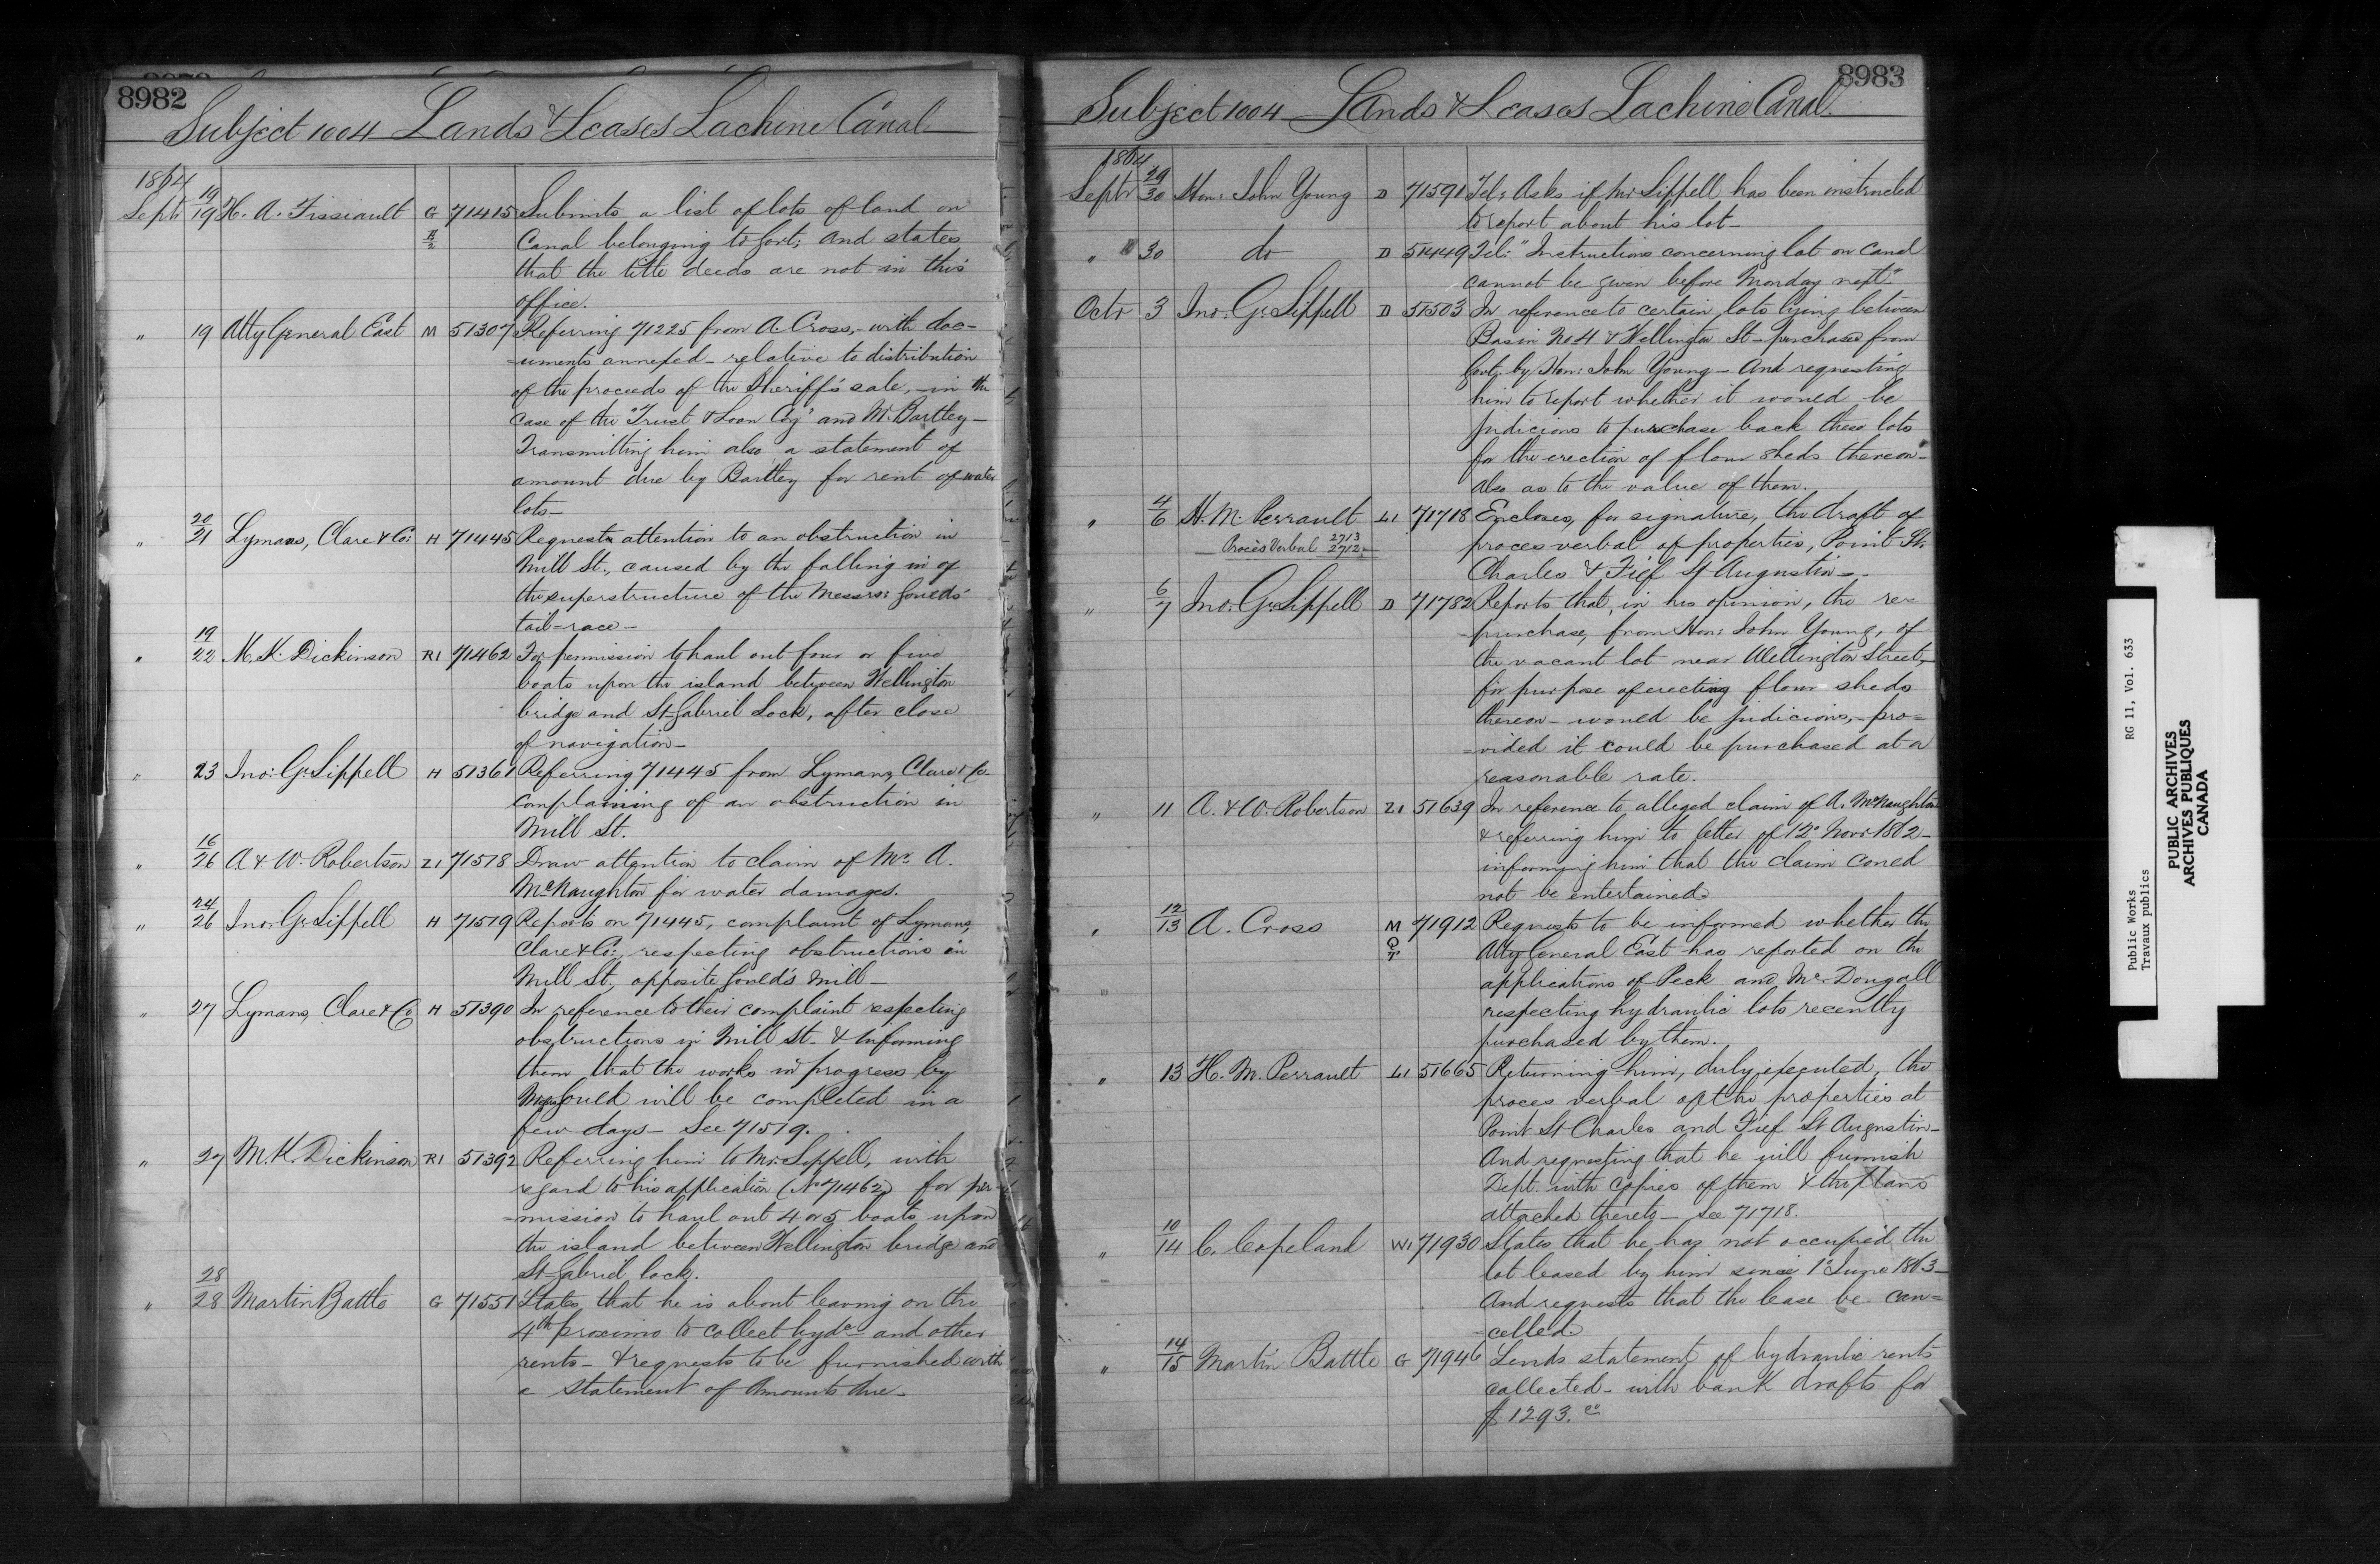 8982
Subject 1004 Lands & Leases Lachine Canal
1864
Sept 19/19 H. A. Fissiault G 71415 Submits a list of lots of land on
Canal belonging to Govt; and states
that the title deeds are not in this
office.
" 19 Atty General East M 51307 Referring 71225 from A. Cross, - with doc-
-uments annexed - relative to distribution
of the proceeds of the Sheriff's sale, - in the
case of the "Trust & Loan Coy" and W. Bartley -
Transmitting him also a statement of
amount due by Bartley for rent of water
lots -
" 20/21 Lymans, Clare & Co: H 71445 Requests attention to an obstruction in
Mill St., caused by the falling in of
the superstructure of the Messrs: Goulds'
tail-race -
" 19/22 M. K. Dickinson R1 71462 For permission to haul out four or five
boats upon the island between Wellington
bridge and St Gabriel Lock, after close
of navigation -
" 23 Jno: G. Sippell H 51361 Referring 71445 from Lymans, Clare & Co.
complaining of an obstruction in
Mill St.
" 16/26 A & W. Robertson Z1 71518 Draw attention to claim of Mr. A.
McNaughton for water damages.
" 24/26 Jno: G. Sippell H 71519 Reports on 71445, complaint of Lymans,
Clare & Co:, respecting obstructions in
Mill St, opposite Gould's Mill -
" 27 Lymans, Clare & Co H 51390 In reference to their complaint respecting
obstructions in Mill St. & informing
them that the works in progress by
Gould will be completed in a
few days - See 71519.
" 27 M. K. Dickinson R1 51392 Referring him to Mr. Sippell, with
regard to his application (No 71462) for per-
-mission to haul out 4 or 5 boats upon
the island between Wellington bridge and
St Gabriel lock.
" 28/28 Martin Battle G 71551 States that he is about leaving on the
4th proximo to collect hydc and other
rents - & requests to be furnished with
a statement of amounts due -
8983
Subject 1004 Lands & Leases Lachine Canal.
1864
Septr 29/30 Hon: John Young D 71591 Tel: Asks if Mr Sippell has been instructed
to report about his lot -
" 30 do D 51449 Tel: "Instructions concerning lot on Canal
cannot be given before Monday next"
Octr 3 Jno: G. Sippell D 51503 In reference to certain lots lying between
Basin No 4 & Wellington St - purchased from
Govt. by Hon: John Young - And requesting
him to report whether it would be
judicious to purchase back these lots
for the erection of flour sheds thereon -
also as to the value of them.
" 4/6 H. M. Perrault L1 71718 Encloses, for signature, the draft of
Procès Verbal 2713 2712
proces verbal of properties, Point St.
Charles & Fief St Augustin -
" 6/7 Jno: G. Sippell D 71782 Reports that, in his opinion, the re-
-purchase, from Hon: John Young, of
the vacant lot near Wellington Street, -
for purpose of erecting flour sheds
thereon - would be judicious, - pro-
-vided it could be purchased at a
reasonable rate.
" 11 A. & W. Robertson Z1 51639 In reference to alleged claim of A. McNaughton
& referring him to letter of 12o Novr 1862 -
informing him that the claim could
not be entertained -
" 12/13 A. Cross M Q T 71912 Requests to be informed whether the
Atty General East has reported on the
applications of Peck and McDougall
respecting hydraulic lots recently
purchased by them.
" 13 H. M. Perrault L1 51665 Returning him, duly executed, the
proces verbal of the properties at
Point St Charles and Fief St Augustin -
And requesting that he will furnish
Dept. with copies of them & the plans
attached thereto - See 71718.
" 10/14 C. Copeland W1 71930 States that he has not occupied the
lot leased by him since 1o June 1863 -
And requests that the lease be can-
-celled.
" 14/15 Martin Battle G 71946 Sends statement of hydraulic rents
collected - with bank drafts for
$1293.
Public Works RG 11, Vol. 633
Travaux publics
PUBLIC ARCHIVES
ARCHIVES PUBLIQUES
CANADA